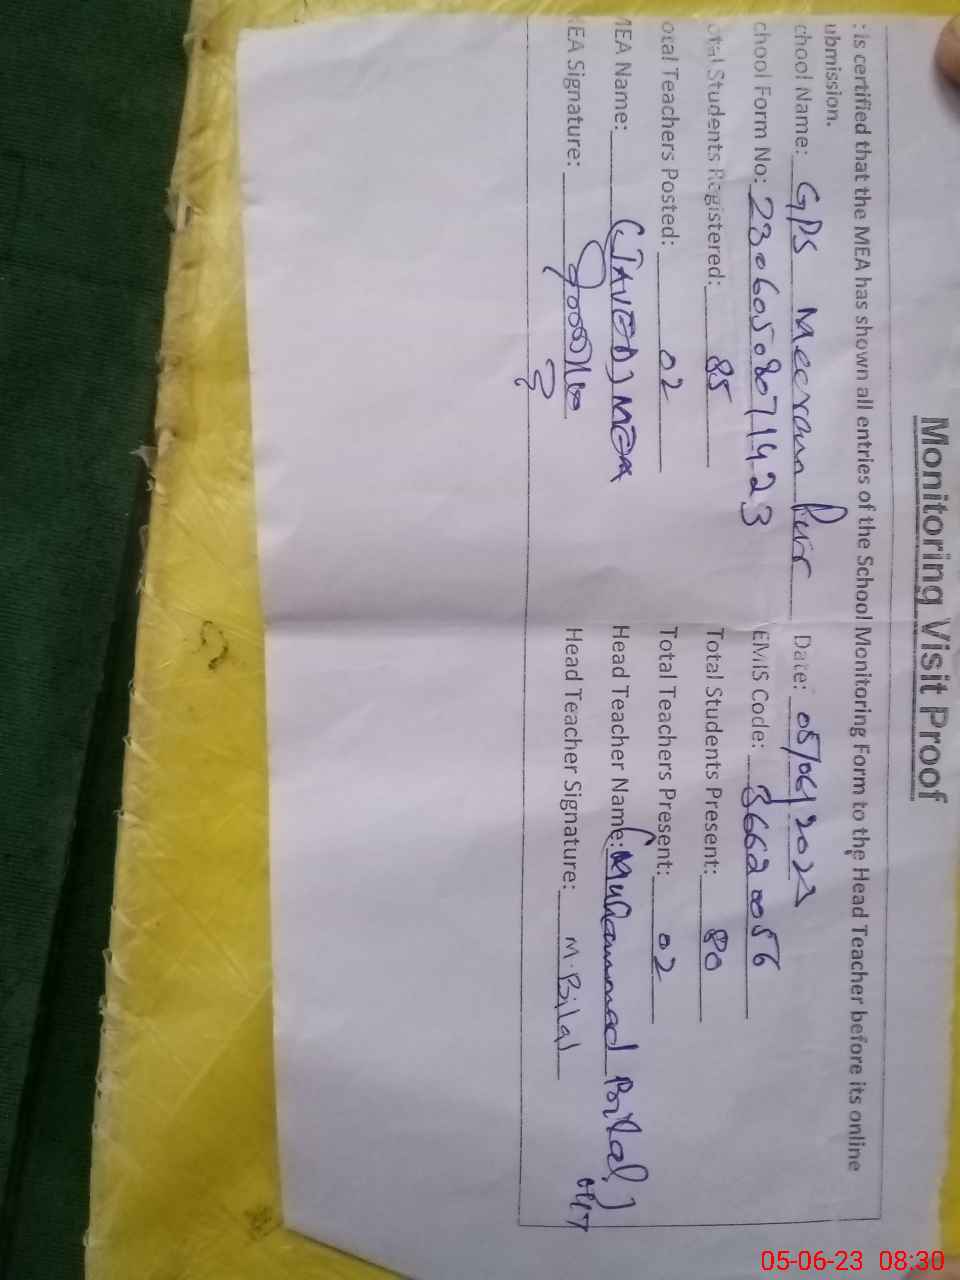 Monitoring Visit Proof
: is certified that the MEA has shown all entries of the School Monitoring Form to the Head Teacher before its online
ubmission.
chool Name: GPS Meeran Purr Date: 05/06/2023
chool Form No: 2306050807 1423 EMIS Code: 36620056
otal Students Registered: 85 Total Students Present: 80
otal Teachers Posted: 02 Total Teachers Present: 02
MEA Name: (JAVED) MEA Head Teacher Name: (Muhammad Bilal)
EA Signature: Head Teacher Signature: M. Bilal
05-06-23 08:30